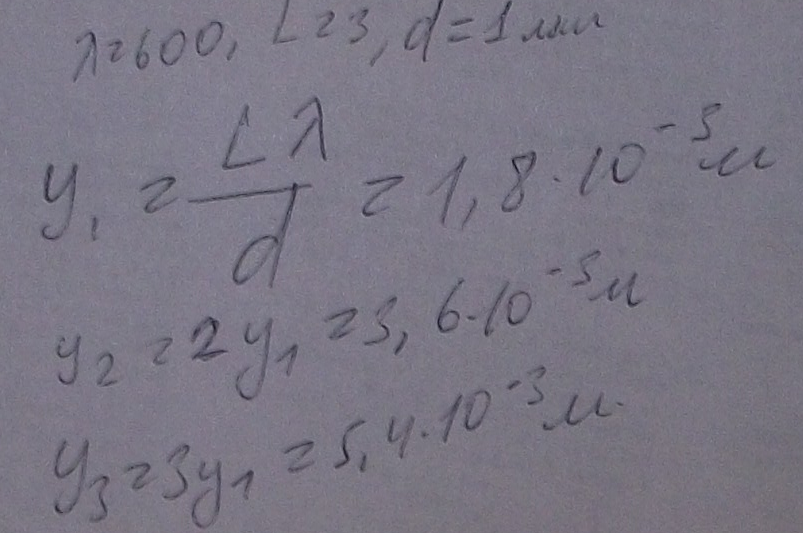 λ=600, L=3, d=1мм
y₁ = Lλ/d = 1,8·10⁻³м
y₂ = 2y₁ = 3,6·10⁻³м
y₃ = 3y₁ = 5,4·10⁻³м.